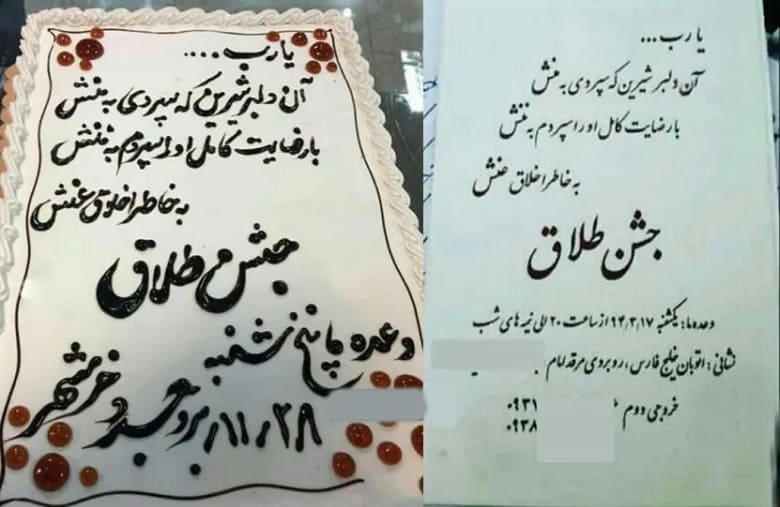 یا رب....
آن دلبر شیرین که سپردی به منش
با رضایت کامل او را سپردم به ننش
به خاطر اخلاق عنش
جشن طلاق
وعده ما پنج شنبه
۱۱/۲۸/ بروجرد خرمشهر
یا رب...
آن دلبر شیرین که سپردی به منش
با رضایت کامل او را سپردم به ننش
به خاطر اخلاق عنش
جشن طلاق
وعده ما: یکشنبه ۹۴,۳,۱۷ از ساعت ۲۰ الی نیمه های شب
نشانی: اتوبان خلیج فارس، روبروی مرقد امام
خروجی دوم ۰۹۳۱
۰۹۳۸